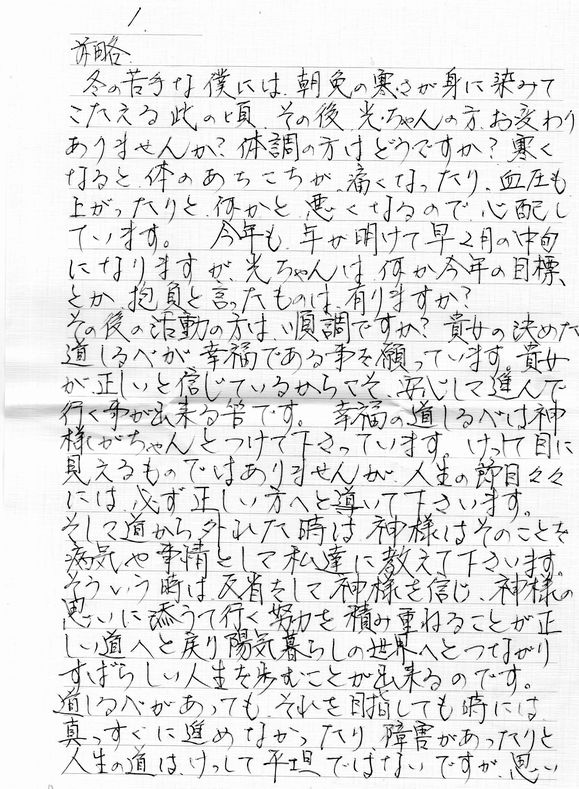 1.
前略
冬の苦手な僕には、朝晩の寒さが身に染みて
こたえる此の頃、その後、光ちゃんの方、お変わり
ありませんか？体調の方はどうですか？寒く
なると、体のあちこちが、痛くなったり、血圧も
上がったりと、何かと、悪くなるので、心配し
ています。　今年も、年が明けて早２月の中旬
になりますが、光ちゃんは、何か今年の目標、
とか、抱負と言ったものは、有りますか？
その後の活動の方は、順調ですか？貴女の決めた
道しるべが幸福である事を願っています。貴女
が正しいと信じているからこそ、安心して進んで
行く事が出来る筈です。　幸福の道しるべは神
様がちゃんとつけて下さっています。けっして目に
見えるものではありませんが、人生の節目々々
には、必ず正しい方へと導いて下さいます。
そして道から外れた時は神様はそのことを
病気や事情として私達に教えて下さいます。
そういう時は、反省をして神様を信じ、神様の
思いに添うて行く努力を積み重ねることが正
しい道へと戻り陽気暮らしの世界へとつながり
すばらしい人生を歩むことが出来るのです。
道しるべがあっても、それを目指しても時には、
真っすぐに進めなかったり、障害があったりと
人生の道は、けっして平坦ではないですが、思い